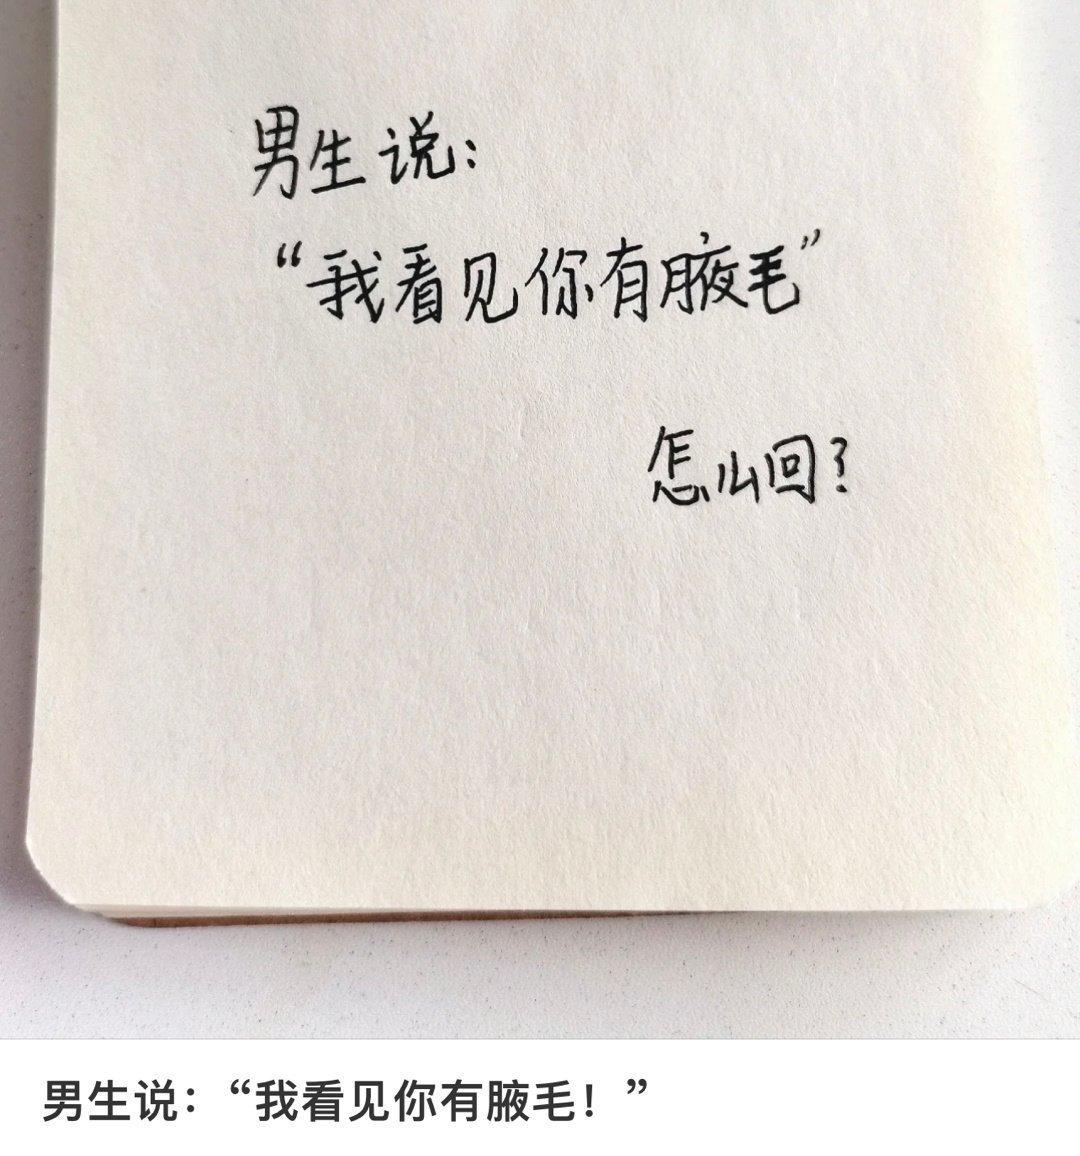 男生说：
“我看见你有腋毛”
怎么回？
男生说：“我看见你有腋毛！”